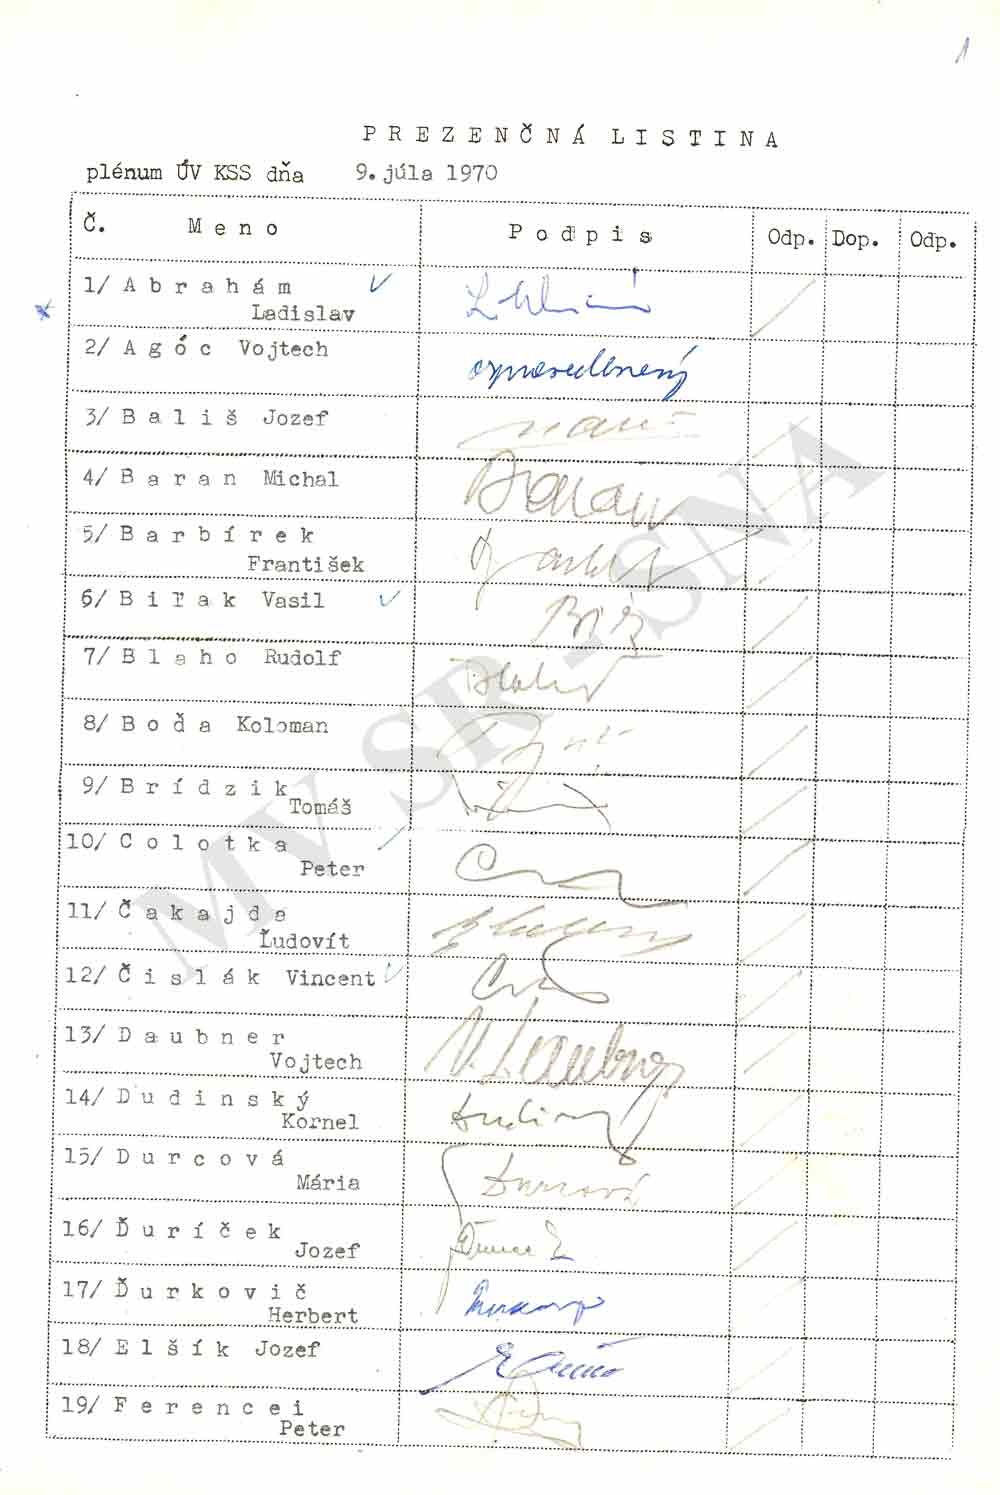 1
P R E Z E N Č N Á   L I S T I N A
plénum ÚV KSS dňa 9. júla 1970
Č. M e n o P o d p i s Odp. Dop. Odp.
1/ A b r a h á m
Ladislav
2/ A g ó c Vojtech ospravedlnený
3/ B a l i š Jozef
4/ B a r a n Michal Baran
5/ B a r b í r e k
František
6/ B i ľ a k Vasil
7/ B l a h o Rudolf Blaho
8/ B o ď a Koloman
9/ B r í d z i k
Tomáš
10/ C o l o t k a
Peter
11/ Č a k a j d a
Ľudovít
12/ Č i s l á k Vincent
13/ D a u b n e r V. Daubner
Vojtech
14/ D u d i n s k ý
Kornel
15/ D u r c o v á
Mária Durcová
16/ Ď u r í č e k
Jozef
17/ Ď u r k o v i č
Herbert
18/ E l š í k Jozef
19/ F e r e n c e i
Peter
MV SR - SNA